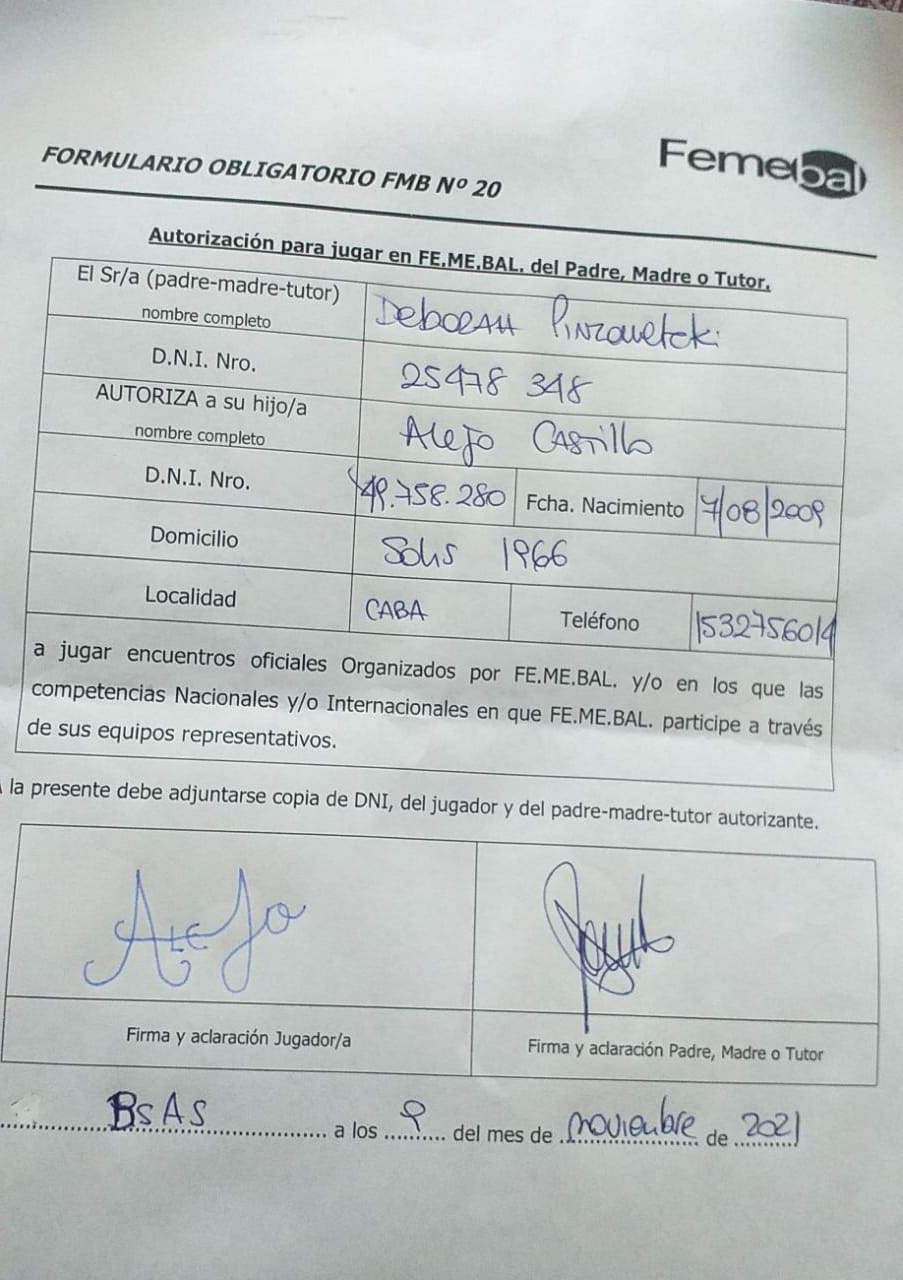 Femebal
FORMULARIO OBLIGATORIO FMB Nº 20
Autorización para jugar en FE.ME.BAL. del Padre, Madre o Tutor.
El Sr/a (padre-madre-tutor)
nombre completo
Deborah
D.N.I. Nro.
25478 348
AUTORIZA a su hijo/a
nombre completo
Alejo Castillo
D.N.I. Nro.
49.758.280
Fcha. Nacimiento
7/08/2009
Domicilio
Solis 1966
Localidad
CABA
Teléfono
1532756014
a jugar encuentros oficiales Organizados por FE.ME.BAL. y/o en los que las
competencias Nacionales y/o Internacionales en que FE.ME.BAL. participe a través
de sus equipos representativos.
A la presente debe adjuntarse copia de DNI, del jugador y del padre-madre-tutor autorizante.
Alejo
Firma y aclaración Jugador/a
Firma y aclaración Padre, Madre o Tutor
BsAs a los 9 del mes de noviembre de 2021